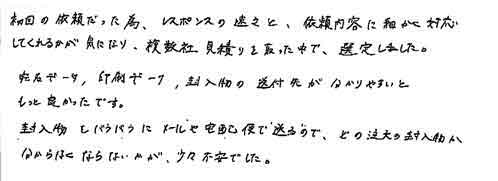 初回の依頼だった為、レスポンスの速さと、依頼内容に細かく対応
してくれるかが気になり、複数社見積りを取った中で、選定しました。
宛名データ、印刷データ、封入物の送付先が分かりやすいと
もっと良かったです。
封入物をバラバラにメールや宅配便で送るので、どの注文の封入物か
分からなくならないかが、少々不安でした。